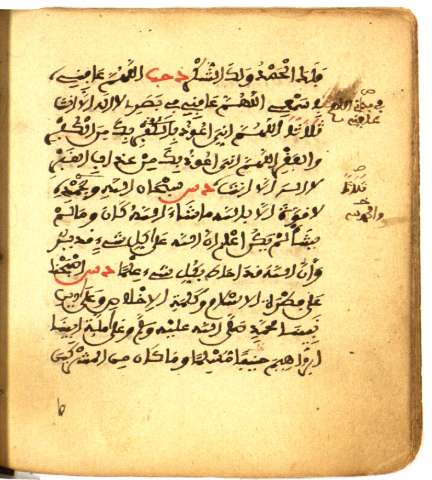 فلك الحمد ولك الشكر د حب اللهم عافني
في سمعي اللهم عافني في بصري لا اله الا انت
ثلاثا اللهم اني اعوذ بك من الكفر
والفقر اللهم اني اعوذ بك من عذاب القبر
لا اله الا انت د س سبحان الله وبحمده
لا قوة الا بالله ما شاء الله كان وما لم
يشأ لم يكن اعلم ان الله على كل شيء قدير
وان الله قد احاط بكل شيء علما د س اصبحنا
على فطرة الاسلام وكلمة الاخلاص وعلى دين
نبينا محمد صلى الله عليه وسلم وعلى ملة ابينا
ابراهيم حنيفا مسلما وما كان من المشركين
ثلاثا